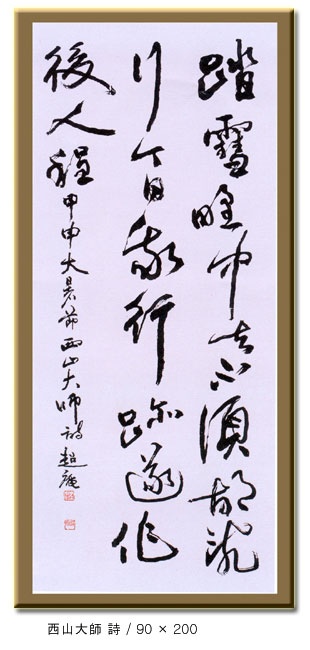 踏雪野中去不須胡亂
行今日我行跡遂作
後人程 甲申大暑節西山大師詩 超
西山大師 詩 / 90 × 200